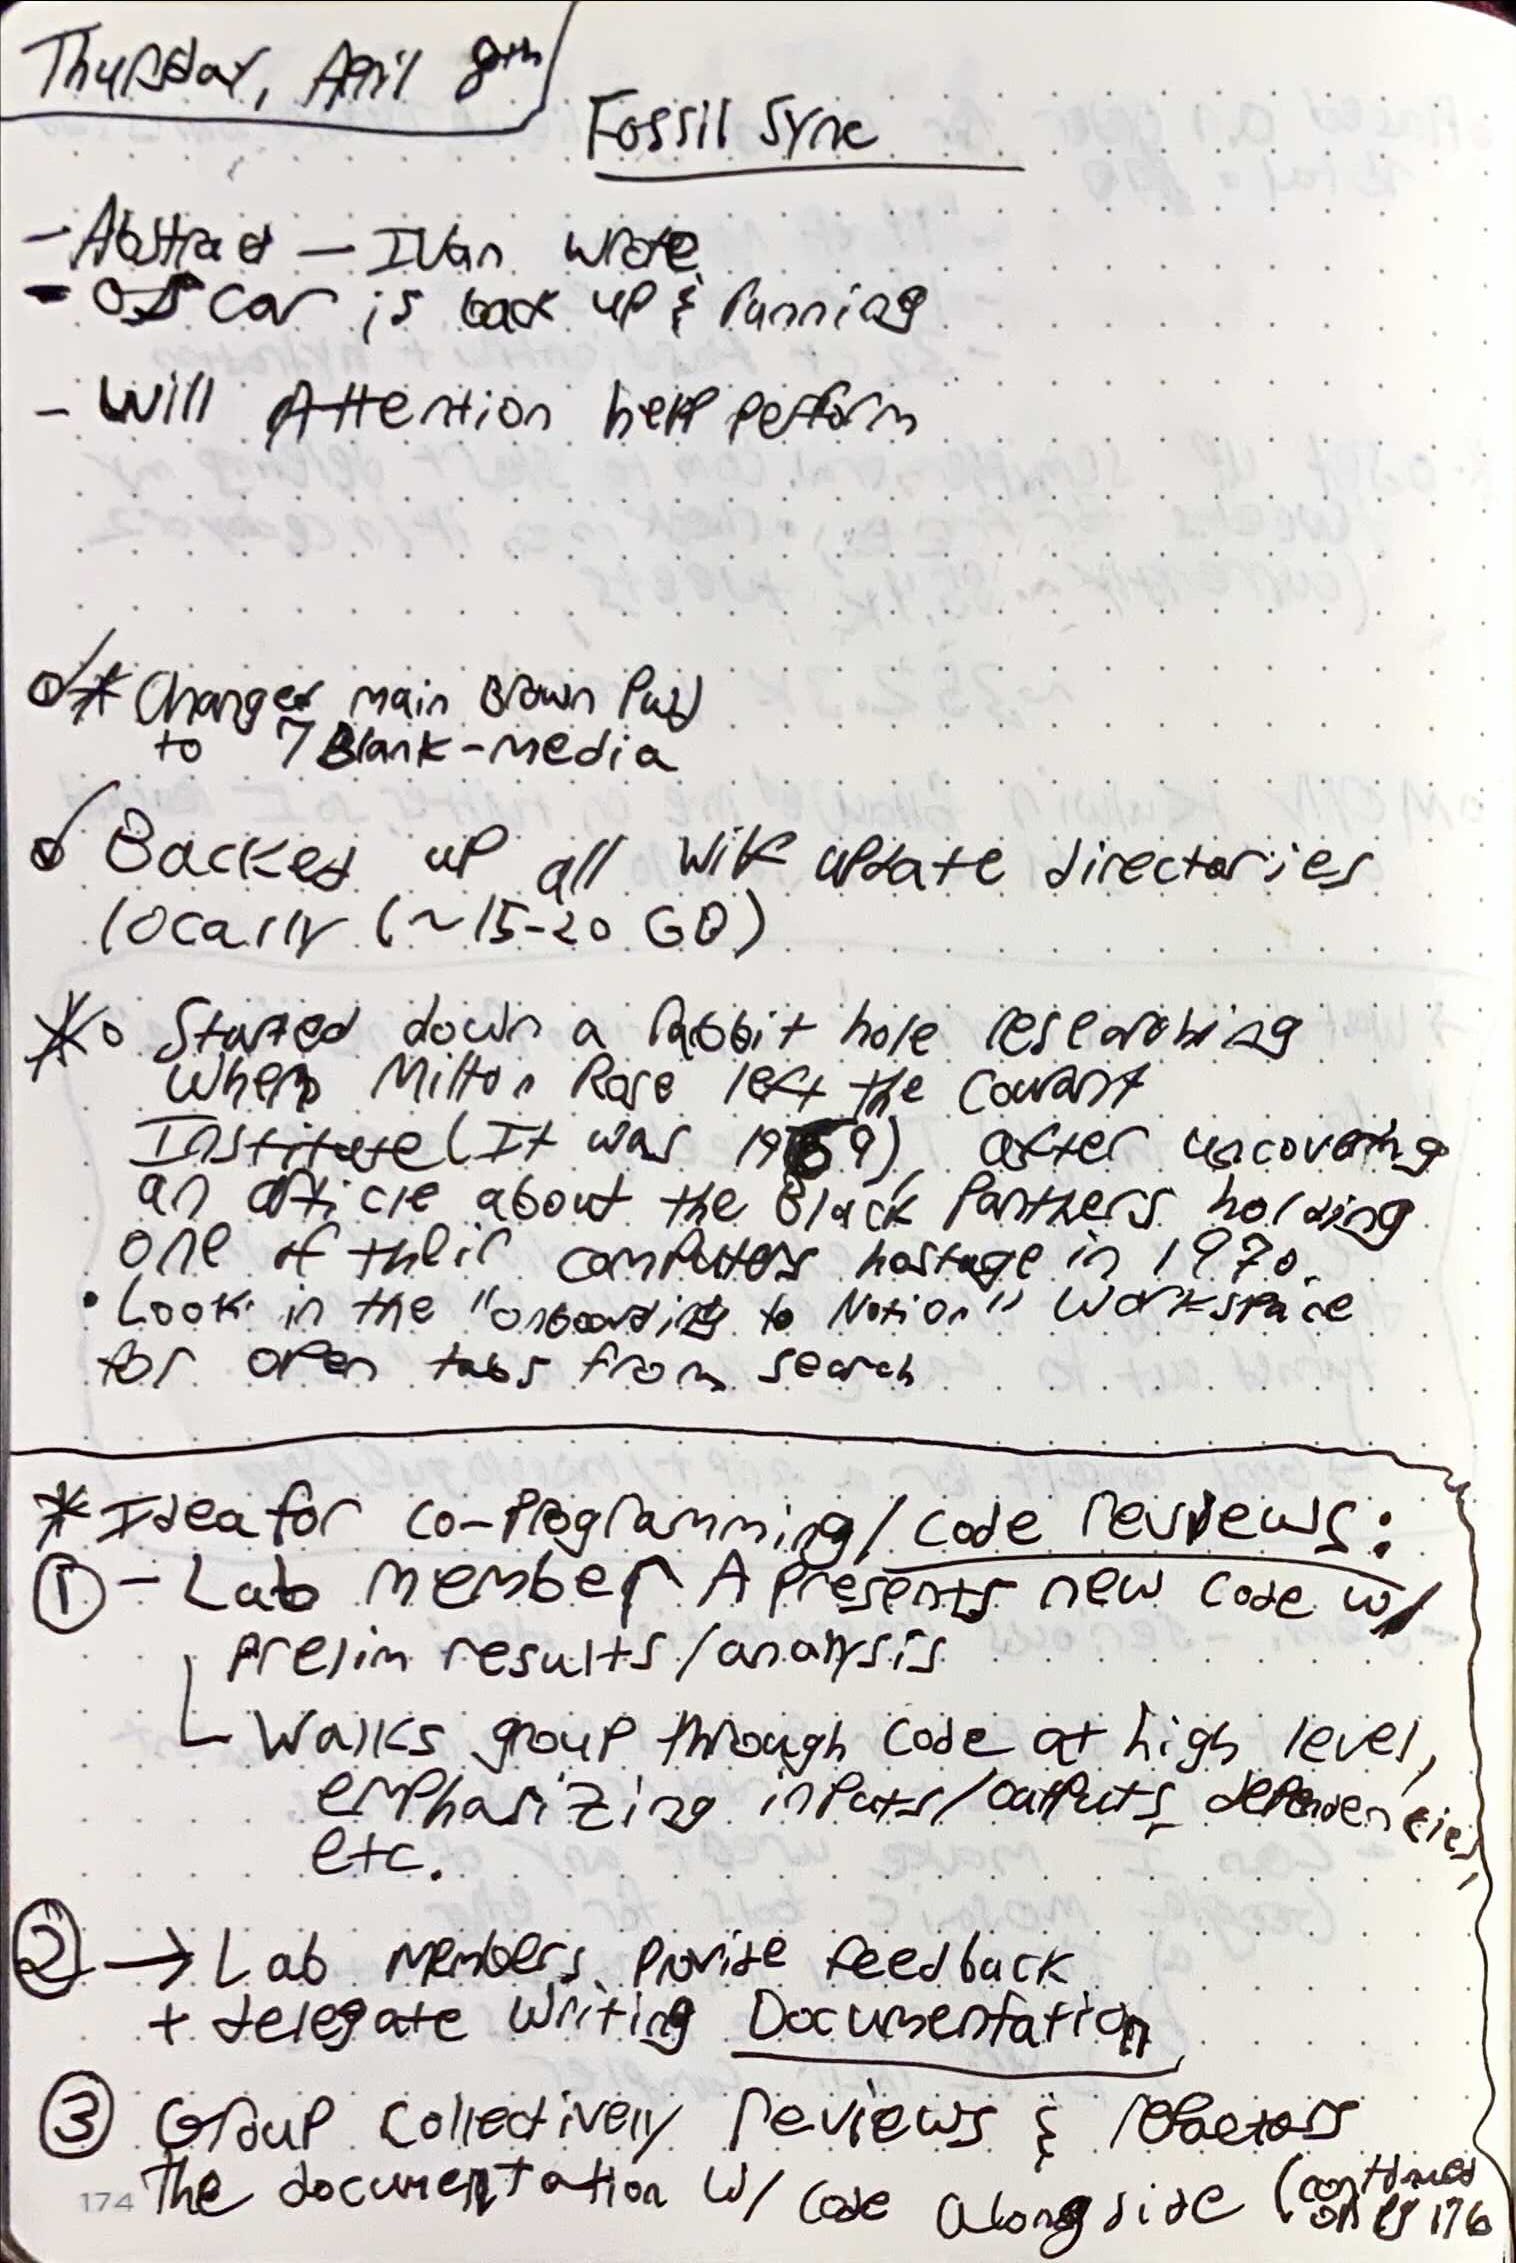 Thursday, April 8th
Fossil Sync
- Abstract - Ivan wrote
- OSCar is back up & running
- Will Attention help perform
* Changed main Brown Pwd
to 7Blank-media
Backed up all Wilf update directories
locally (~15-20 GB)
* Started down a rabbit hole researching
when Milton Rose left the Courant
Institute (It was 1969), after uncovering
an article about the Black Panthers holding
one of their computers hostage in 1970.
• Look in the "onboarding to Notion" workspace
for open tabs from search
* Idea for co-programming/code reviews:
① - Lab member A presents new code w/
prelim results/analysis
Walks group through code at high level,
emphasizing inputs/outputs, dependencies,
etc.
② → Lab members provide feedback
+ delegate writing Documentation
③ Group collectively reviews & refactors
The documentation w/ code alongside (continued
on pg 176
174